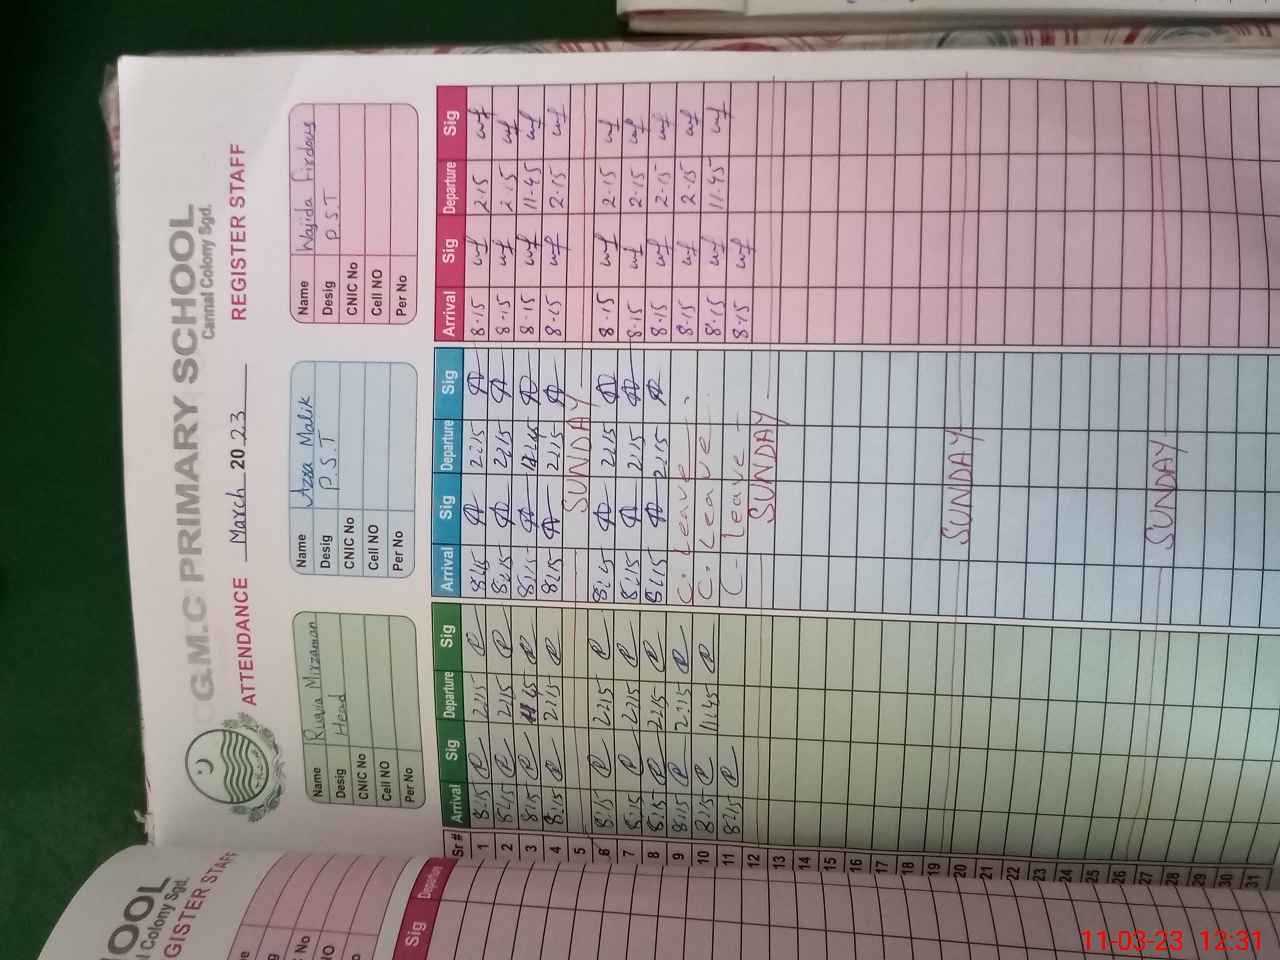 G.M.C PRIMARY SCHOOL
Cannal Colony Sgd.
ATTENDANCE March 2023 REGISTER STAFF
Name Ruqia Mirzaman
Desig Head
CNIC No
Cell NO
Per No
Name Azra Malik
Desig P.S.T
CNIC No
Cell NO
Per No
Name Wajida Firdous
Desig P.S.T
CNIC No
Cell NO
Per No
Sr # Arrival Sig Departure Sig Arrival Sig Departure Sig Arrival Sig Departure Sig
1 8:15 2:15 8:15 2:15 8.15 wf 2.15 wf
2 8:15 2:15 8:15 2:15 8.15 wf 2.15 wf
3 8:15 11:45 8:15 8.15 wf 11.45 wf
4 8:15 2:15 8:15 2:15 8.15 wf 2.15 wf
5 SUNDAY
6 8:15 2:15 8:15 2:15 8.15 wf 2.15 wf
7 8:15 2:15 8:15 2:15 8.15 wf 2.15 wf
8 8:15 2:15 8:15 2:15 8.15 wf 2.15 wf
9 8:15 2:15 C. Leave 8.15 wf 2.15 wf
10 8:15 11:45 C. Leave 8.15 wf 11.45 wf
11 8:15 C. Leave 8.15 wf
12 SUNDAY
13
14
15
16
17
18
19
20 SUNDAY
21
22
23
24
25
26
27
28 SUNDAY
29
30
31
OOL
l Colony Sgd.
GISTER STAFF
e
CNIC No
NO
Sig Departure
11-03-23 12:31